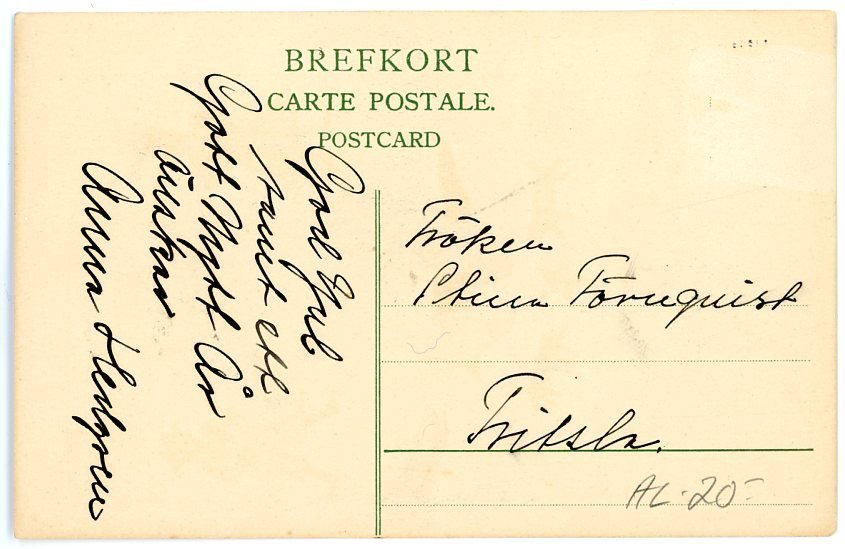 BREFKORT
CARTE POSTALE.
POSTCARD
God Jul
samt ett
Gott Nytt År
önskar
Anna Hedgren
Fröken
Stina Törnquist
Fritsla.
AL-20-